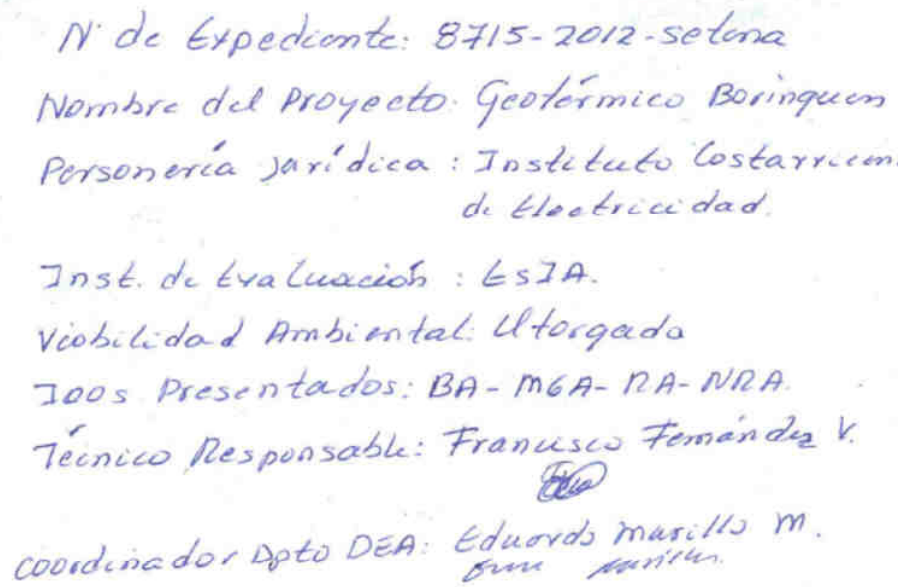 N° de Expediente: 8715-2012-setena
Nombre del Proyecto: Geotérmico Borinquen
Personería Jurídica : Instituto Costarricen.
de Electricidad.
Inst. de Evaluación : EsIA.
Viabilidad Ambiental: Otorgada
Presentados: BA-MGA-RA-NRA.
Técnico Responsable: Francisco Fernández V.
Coordinador Dpto DEA: Eduardo Murillo M.